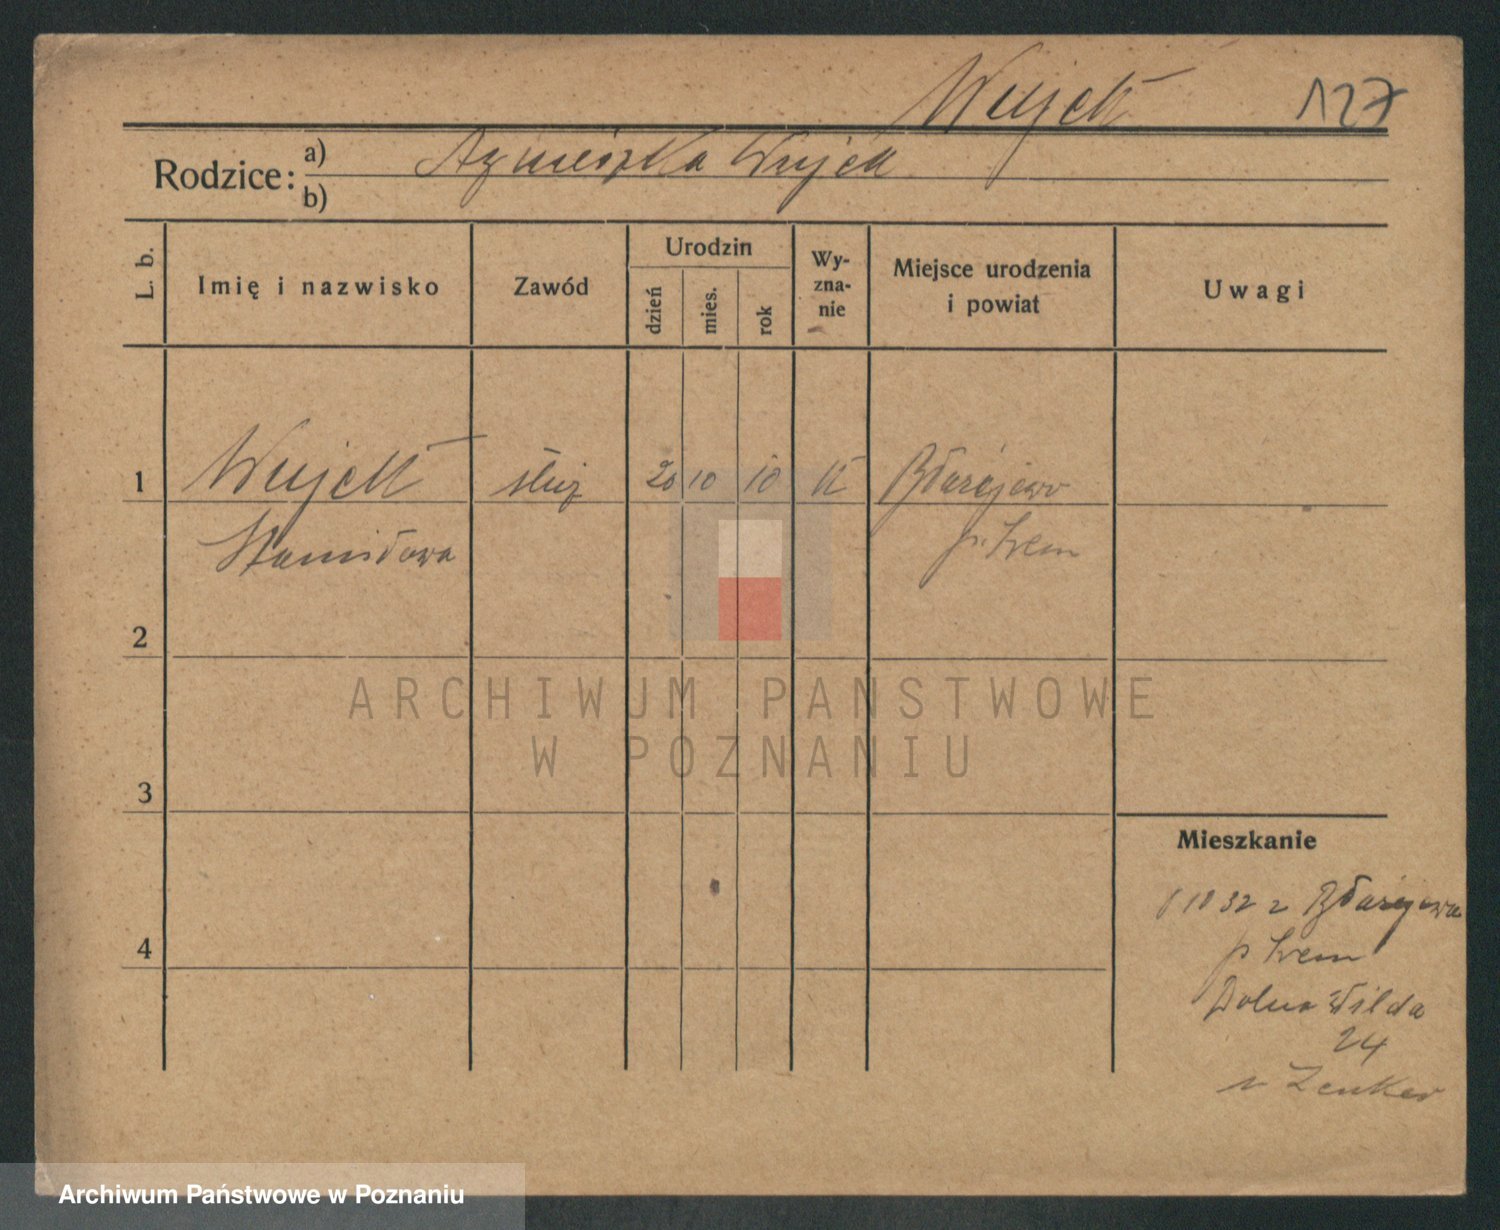 Wujek 127
Rodzice: a) Agnieszka Wujek
b)
L. b. Imię i nazwisko Zawód Urodzin dzień mies. rok Wy-zna-nie Miejsce urodzenia i powiat Uwagi
1 Wujek służ 20 10 10 k Błażejewo
Stanisława p. Śrem
2
ARCHIWUM PAŃSTWOWE
W POZNANIU
3
Mieszkanie
10 32 z Błażejewa
4
p Śrem
Dolna Wilda
24
Zenker
Archiwum Państwowe w Poznaniu